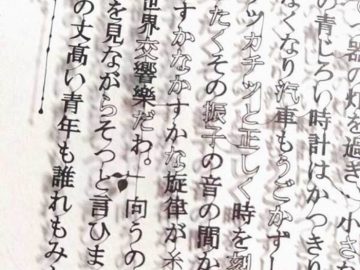 器の灯を過ぎ、小さな
の青じろい時計はかつきり
なくなり汽車もうごかずし
ツカチツと正しく時を刻
たくその振子の音の間か
すかなかすかな旋律が糸
世界交響樂だわ。向うの
を見ながらそつと言ひま
の丈髙い青年も誰れもみ